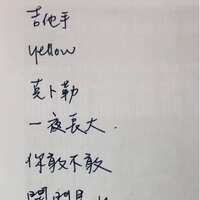 吉他手
yellow
克卜勒
一夜長大.
你敢不敢
開門見